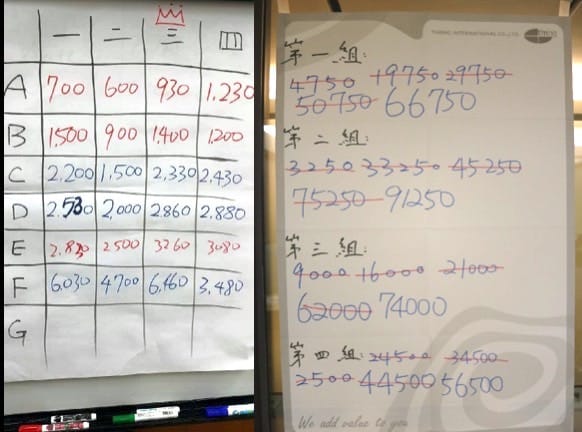 一 二 三 四
A 700 600 930 1.230
B 1500 900 1.400 1200
C 2.200 1,500 2.330 2.430
D 2.530 2,000 2.860 2.880
E 2.830 2500 3260 3080
F 6.030 4700 6,460 3.480
G
THINKING INTERNATIONAL CO., LTD.
第一組:
4750 19750 29750
50750 66750
第二組:
3250 33250 45250
75250 91250
第三組:
9000 16000 21000
62000 74000
第四組: 24500 34500
2500 44500 56500
We add value to you